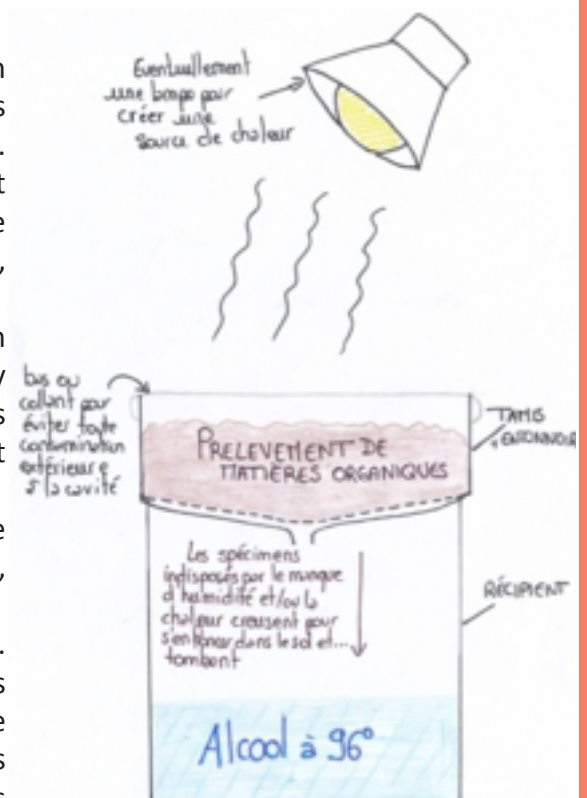 Eventuellement
une lampe pour
créer une
source de chaleur
bas ou
collant pour
éviter toute
contamination
extérieure
à la cavité
TAMIS
+ ENTONNOIR
PRELEVEMENT DE
MATIÈRES ORGANIQUES
Les spécimens
indisposés par le manque
d'humidité et/ou la
chaleur creusent pour
s'enfoncer dans le sol et...
tombent
RÉCIPIENT
Alcool à 96°